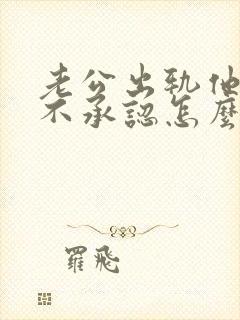 老公出軌他
不承認怎麼
羅飛